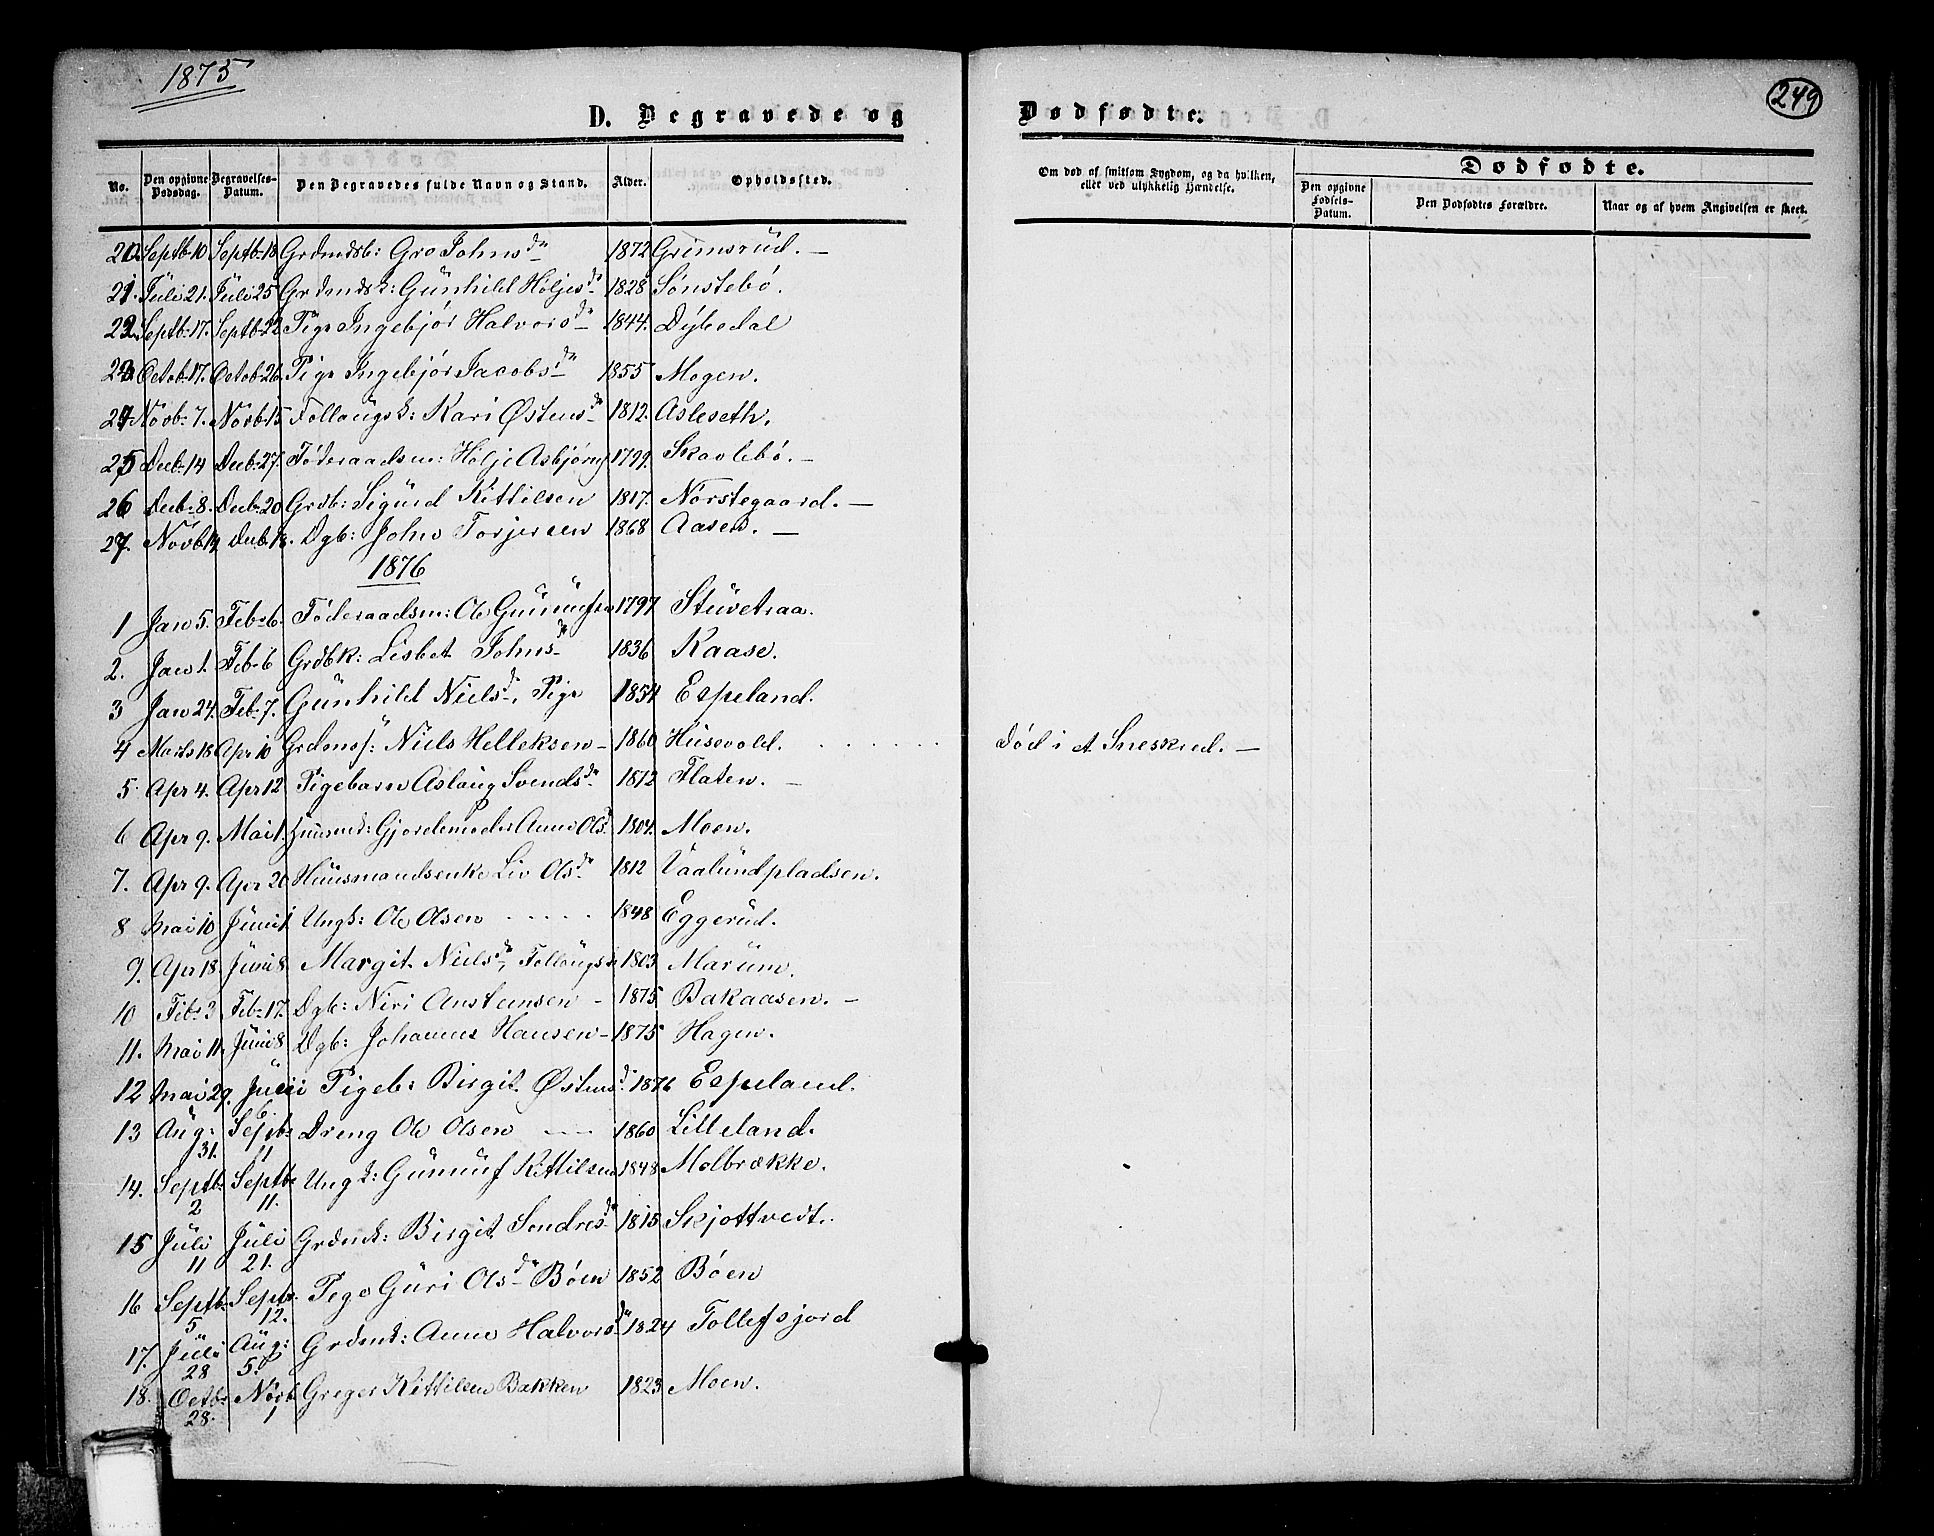 1875
249
D. Begravede og Dødfødte.
No. Den opgivne Dødsdag. Begravelses-Datum. Den Begravedes fulde Navn og Stand. Alder. Opholdssted. Om død af smitsom Sygdom, og da hvilken, eller ved ulykkelig Hændelse. Dødfødte.
Den opgivne Fødsels-Datum. Den Dødfødtes Forældre. Naar og af hvem Angivelsen er skeet.
20 Septb. 10 Septb. 18 Grdmdsb: Gro Johnsdr 1872 Grimsrud. —
21. Juli 21. Juli 25 Grdmdsk: Günhild Høljesdr 1828 Sønstebø.
22 Septb. 17. Septb. 22 Pige Ingebjør Halvorsdr 1844. Dybedal
23 Octob. 17. Octob. 26. Pige Ingebjør Jacobsdr 1855 Mogen.
24 Novb. 7. Novb. 15 Follaugsk: Kari Østensdr 1812. Asleseth.
25 Decb. 14 Decb. 27. Føderaadsm: Hølje Asbjørns 1799. Skavlebø. —
26 Decb. 8. Decb. 20 Grdb: Sigurd Kittilsen 1817. Norstegaard. —
27. Novb. 19 Decb. 18. Dgb: John Torjersen 1868 Aasen. —
1876
1 Jan 5. Feb. 6. Føderaadsm: Ole Gunnufsen 1797 Stüvetraa.
2. Jan 1. Feb. 6 Grdbk: Lisbet Johnsdr 1836 Kaase.
3 Jan 24. Feb. 7. Günhild Nielsd, Pige 1854 Espeland.
4 Marts 18 Apr 10 Grdmss: Niels Helleksen — 1860 Husevold. . . . . . . død i et Sneskred. —
5. Apr 4. Apr 12 Pigebarn Aslaug Svendsdr 1872 Flaten. —
6 Apr 9. Mai 1. Huusmk: Gjordemoder Anne Olsd 1804. Moen.
7. Apr 9. Apr 20 Huusmandsenke Liv Olsdr 1812 Vaalundpladsen.
8 Mai 10 Juni 1. Ungk: Ole Olsen . . . . . 1848 Eggerud.
9. Apr 18. Juni 8. Margit Nielsdr, Follaugsk 1803 Marum.
10 Feb. 3 Feb. 17. Dgb: Niri Anstensen — 1875 Bakaasen. —
11. Mai 11. Juni 8. Dgb: Johannes Hansen — 1875 Hagen.
12 Mai 29. Juni 6. Pigeb: Birgit Østensd. 1876 Espeland.
13 Aug: 31. Septb. 11 Dreng Ole Olsen — 1860 Lilleland.
14. Septb. 2 Septb. 11. Ungk: Gunnuf Kittilsen 1848 Mølbrække.
15 Juli 11 Juli 21. Grdmk: Birgit Sondresdr 1815 Skjottvedt.
16 Septb. 5 Septb. 12. Pige Guri Olsdr Bøen 1852 Bøen
17. Juli 28 Aug: 5. Grdmk: Anne Halvorsdr 1824 Tollefsjord
18. Octb. 28. Novb. 1 Greger Kittilsen Bakken 1823 Moen.